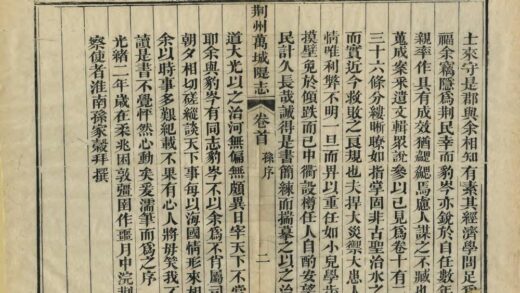 士來守是郡與余相知有素其經濟學問足
福余竊隱爲荆民幸而豹岑亦銳於自任數年
親率作具有成效猶鰓鰓焉慮人謀之不臧也
萬成案來遺文輯眾說參以己見爲卷十有
三十六條分縷晰瞭如指掌固非古聖治水之
而實近今救敗之良規也夫捍大災禦大患人
情唯利弊不明一旦而畀以重任如小兒學步
摸壁免於傾跌而已中衢設樽任人自酌妄
民計久長哉誠得是書簡練而揣摹之以之治
荆州萬城隄志 卷首 孫序 二
道大光以之治河無偏無頗異日宰天下不
耶余與豹岑有同志豹岑不以余爲不肖屬司
朝夕相磋縱談天下事每以海國情形來相
余以時事多艱紀載不果有心人將毋笑我
讀是書不覺怦然心動矣爰濡筆而爲之序
光緒二年歲在柔兆困敦畺圉作噩月申浣荆
察使者淮南孫家穀拜撰